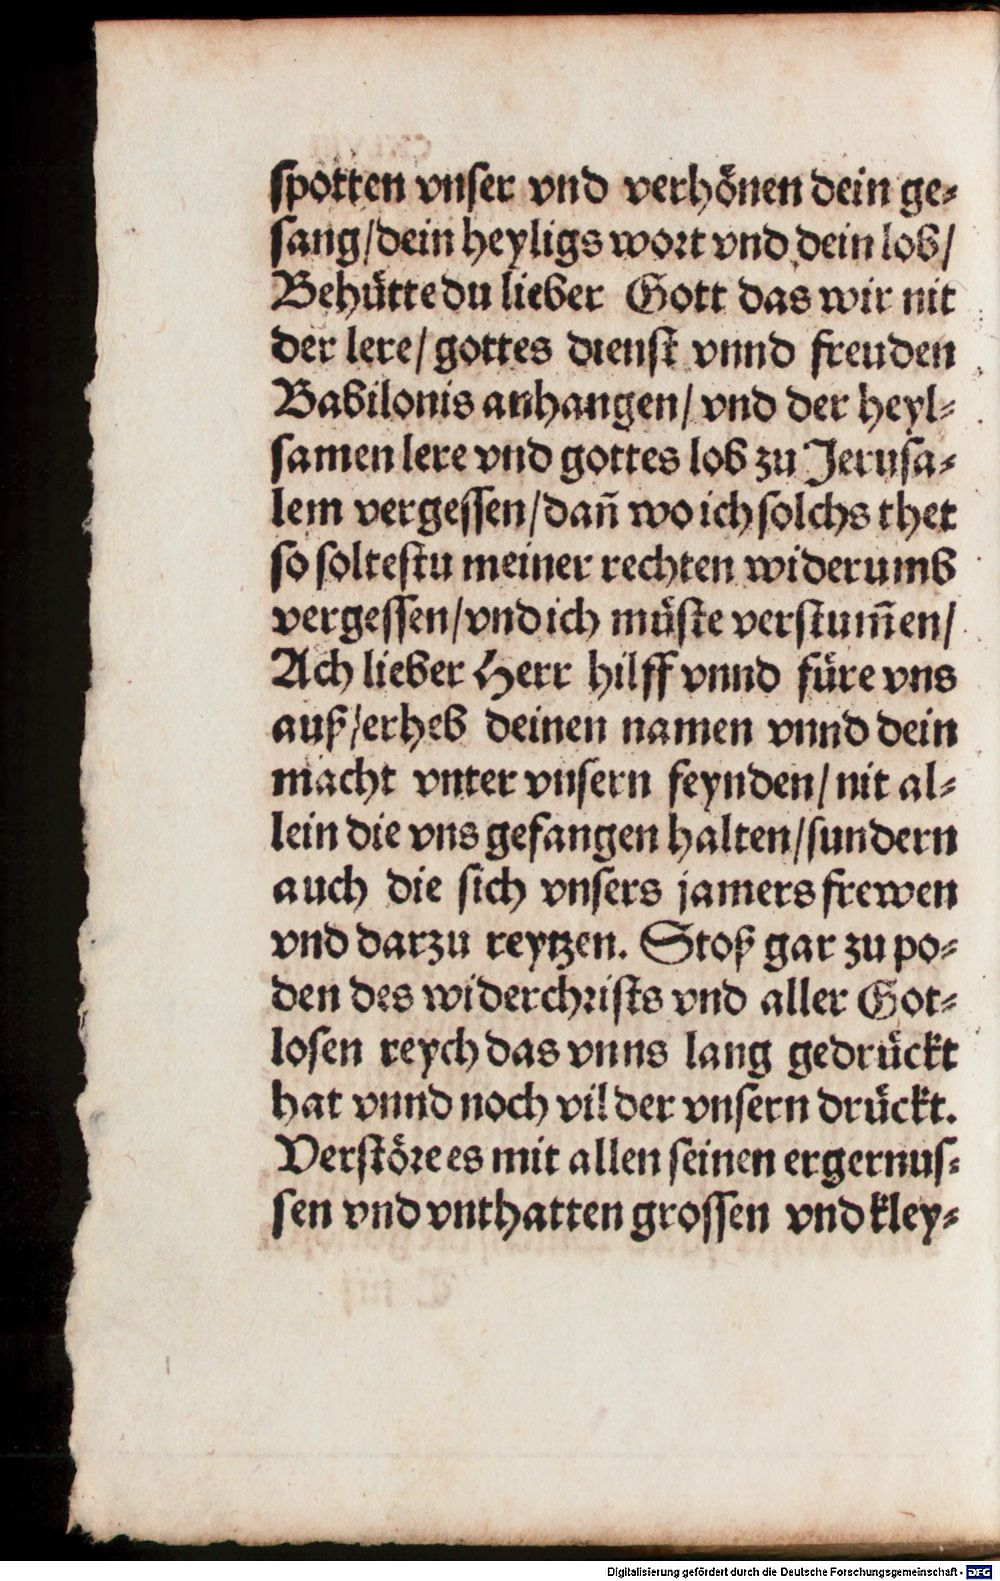 spotten vnser vnd verhönen dein ge⸗
sang/dein heyligs wort vnd dein lob/
Behütte du lieber Gott das wir nit
der lere/gottes dienst vnnd freuden
Babilonis anhangen/vnd der heyl⸗
samen lere vnd gottes lob zu Jerusa⸗
lem vergessen/dañ wo ich solchs thet
so soltestu meiner rechten widerumb
vergessen/vnd ich müste verstum̃en/
Ach lieber Herr hilff vnnd füre vns
auß/erheb deinen namen vnnd dein
macht vnter vnsern feynden/nit al⸗
lein die vns gefangen halten/sundern
auch die sich vnsers jamers frewen
vnd darzu reytzen. Stoß gar zu po⸗
den des widerchrists vnd aller Got⸗
losen reych das vnns lang gedrückt
hat vnnd noch vil der vnsern drückt.
Verstöre es mit allen seinen ergernus⸗
sen vnd vnthatten grossen vnd kley⸗
Digitalisierung gefördert durch die Deutsche Forschungsgemeinschaft - DFG